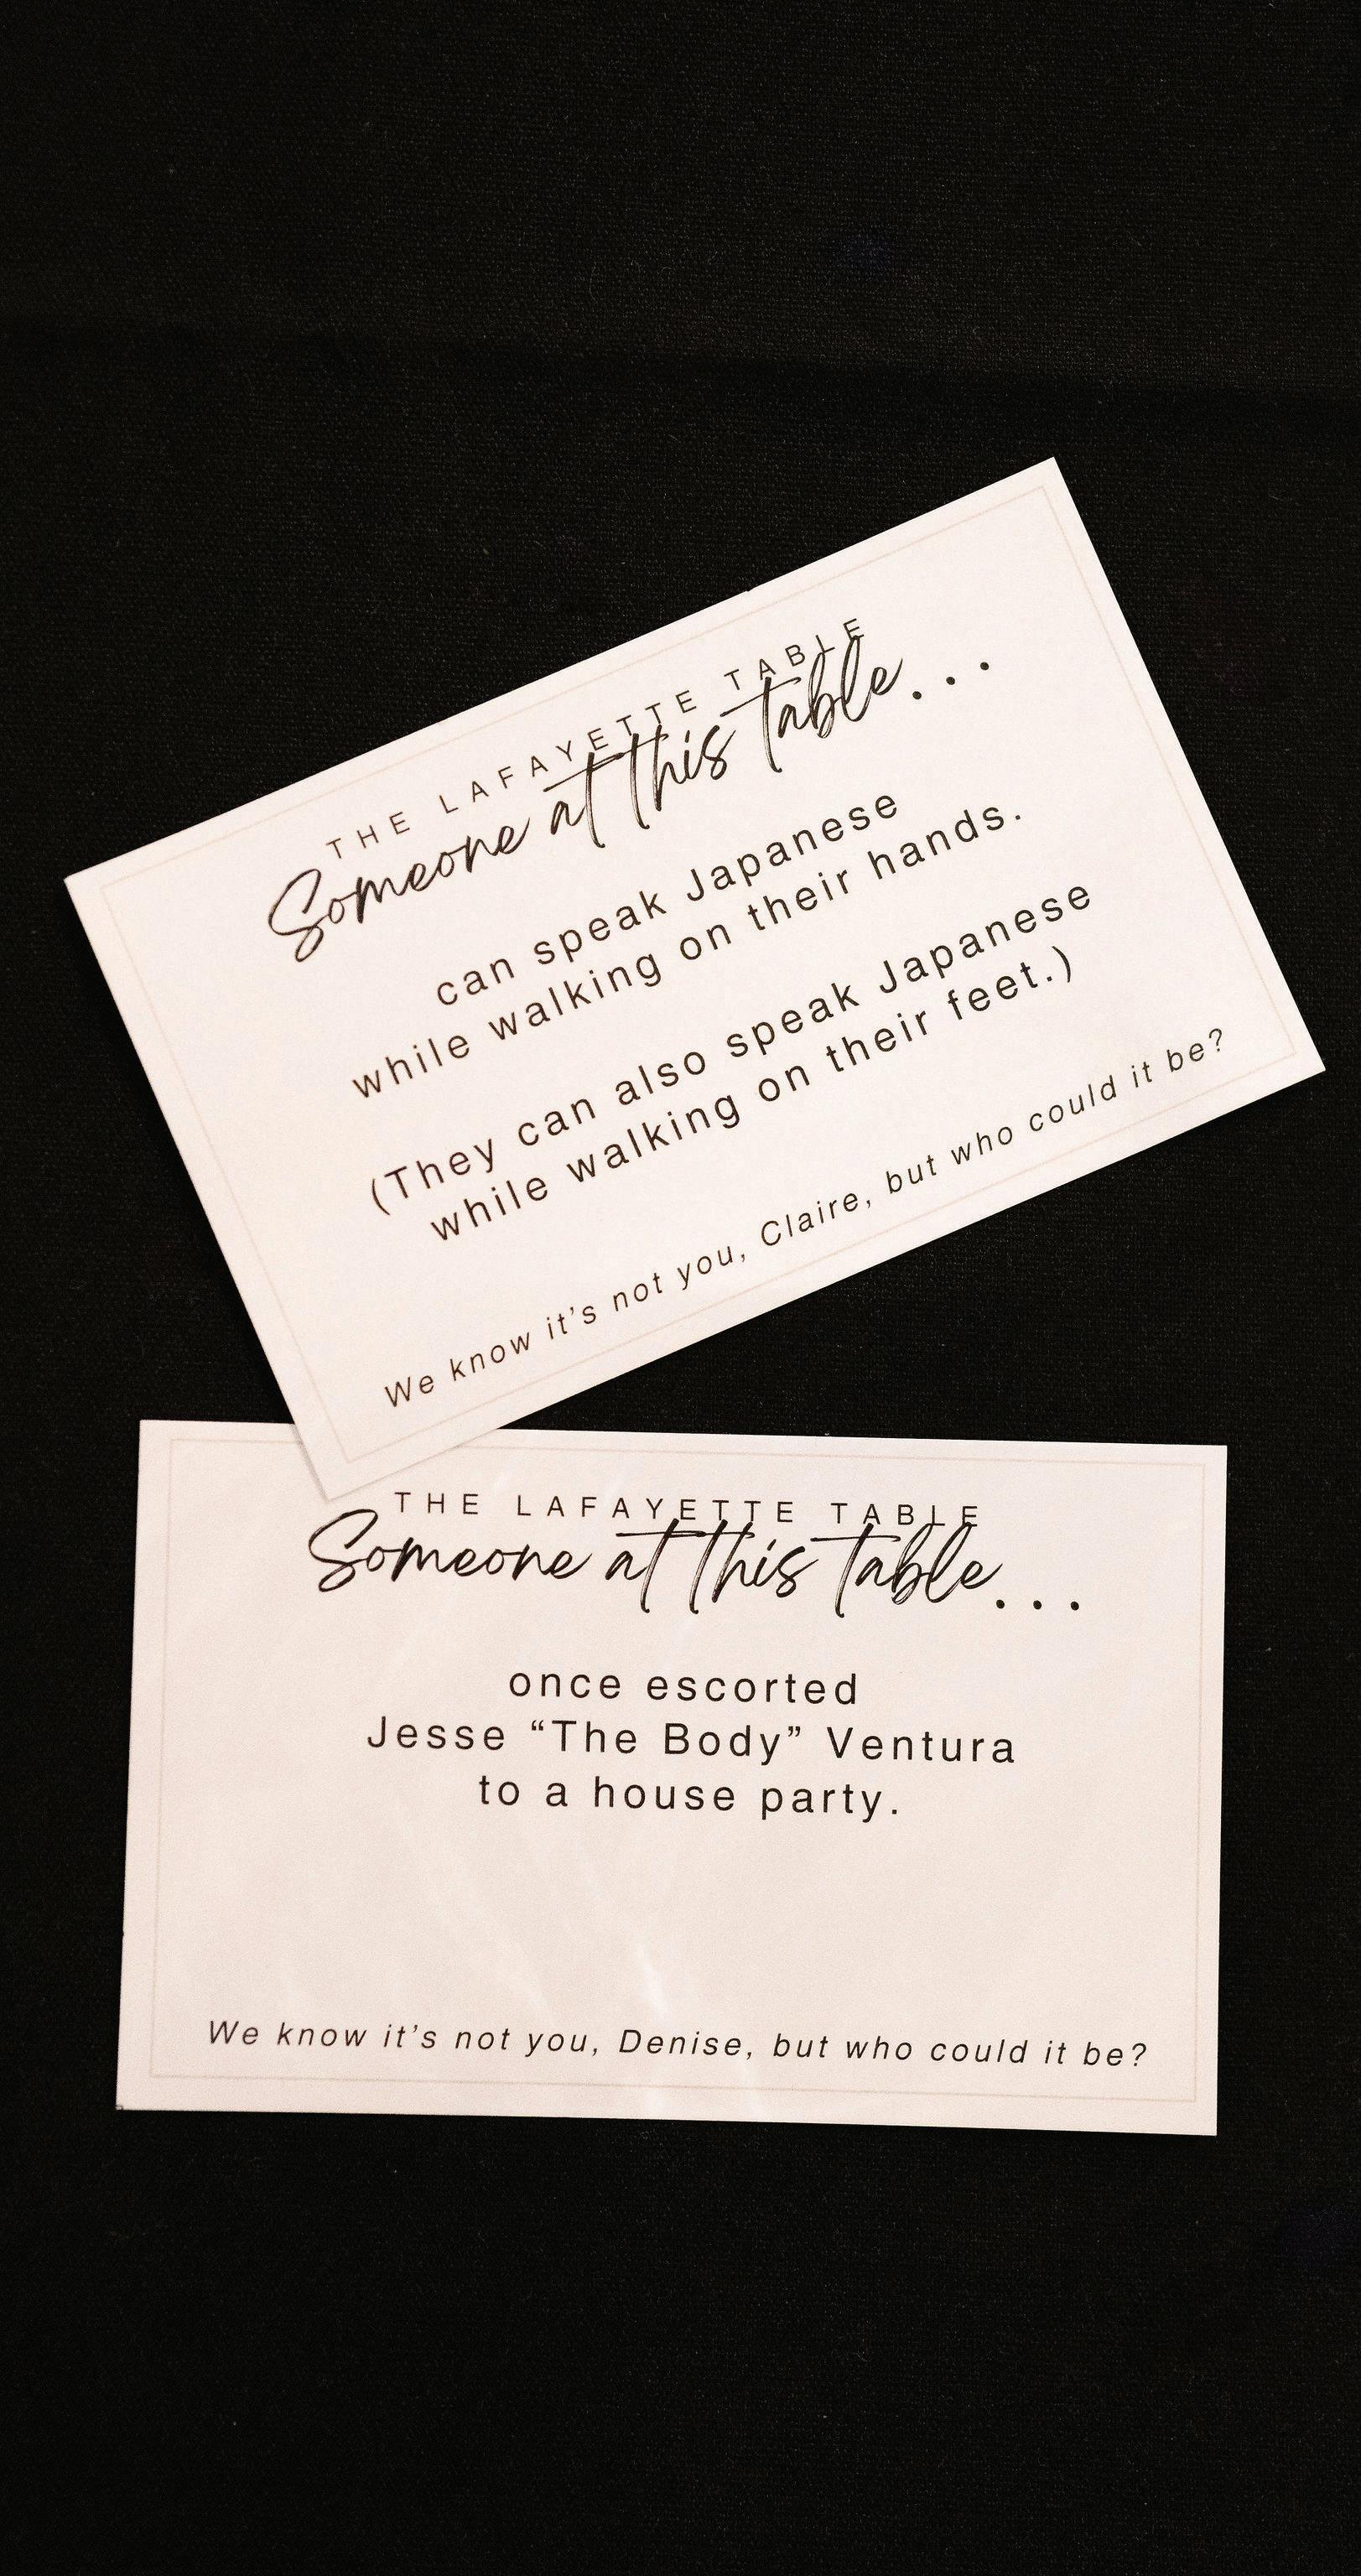 THE LAFAYETTE TABLE
Someone at this table...
can speak Japanese
while walking on their hands.
(They can also speak Japanese
while walking on their feet.)
We know it’s not you, Claire, but who could it be?
THE LAFAYETTE TABLE
Someone at this table...
once escorted
Jesse “The Body” Ventura
to a house party.
We know it’s not you, Denise, but who could it be?